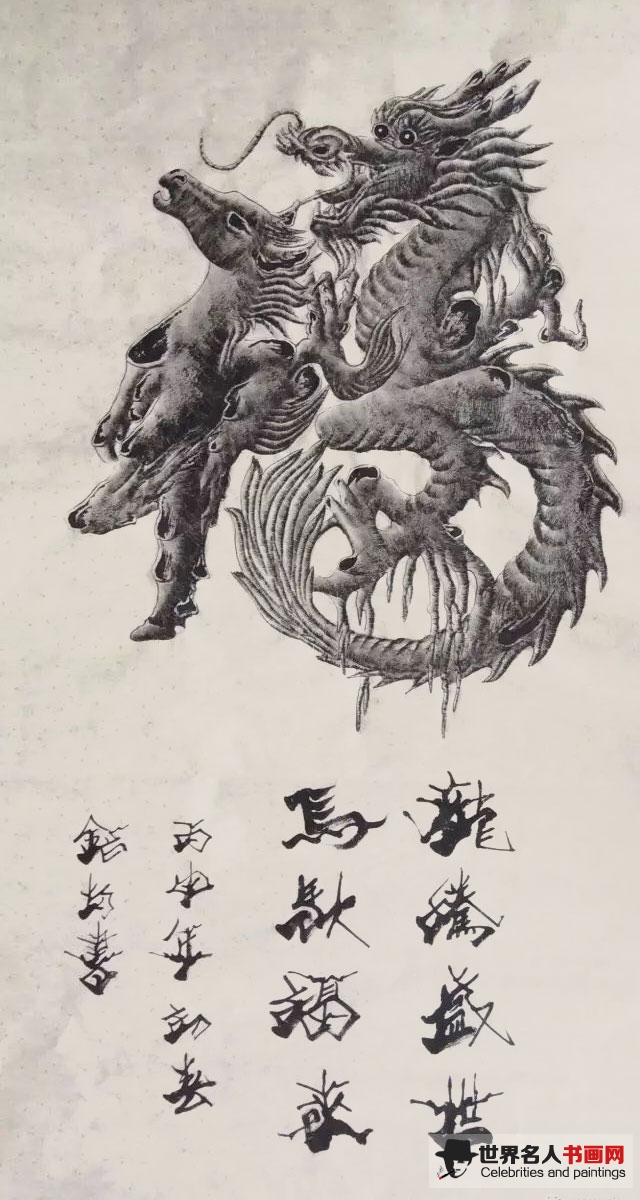 龍騰盛世
馬馱福來
年立春
書
世界名人书画网
Celebrities and paintings